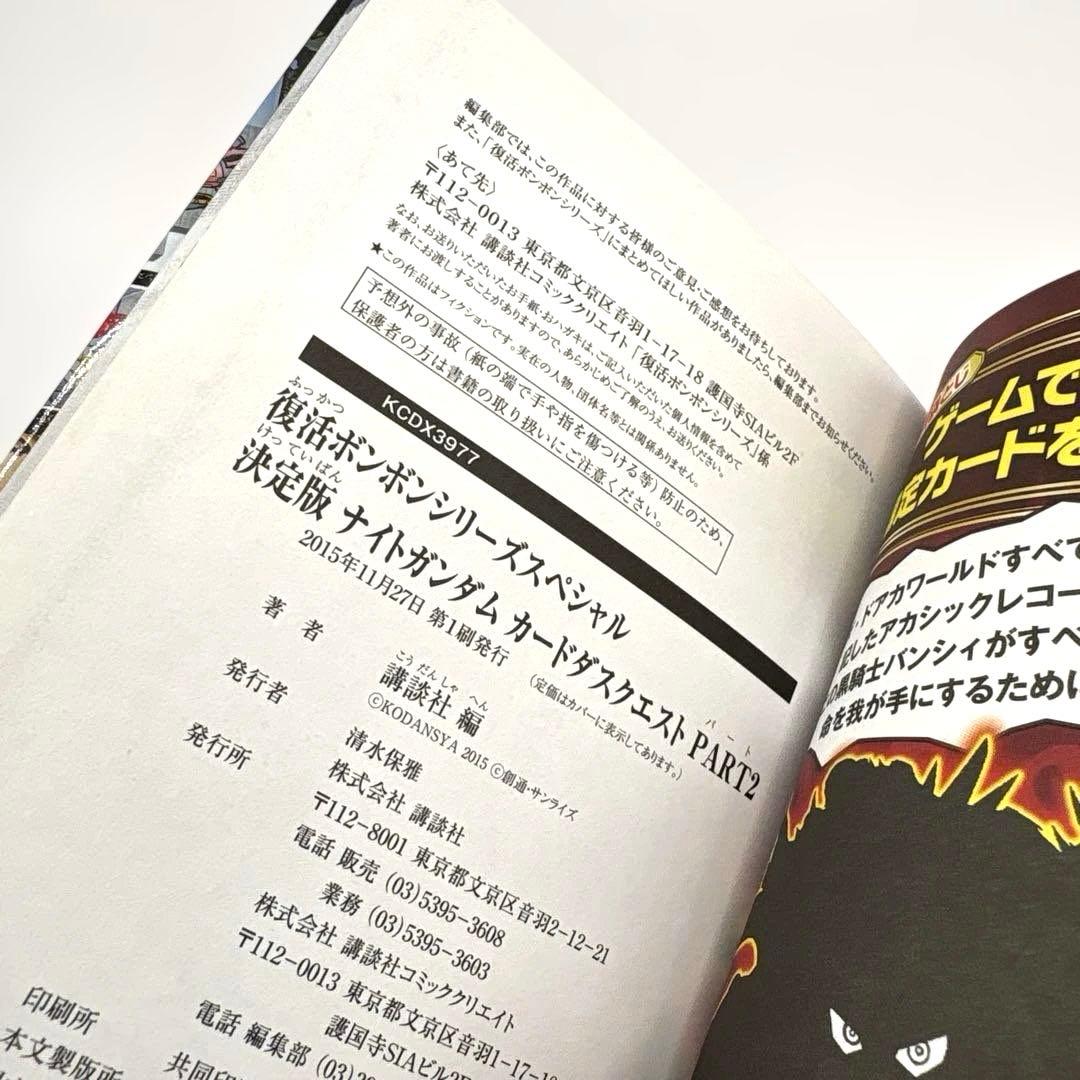 編集部では、この作品に対する皆様のご意見、ご感想をお待ちしております。
また、「復活ボンボンシリーズ」にまとめてほしい作品がありましたら、編集部までお知らせください。
〈あて先〉
〒112-0013 東京都文京区音羽1-17-18 護国寺SIAビル2F
株式会社 講談社コミッククリエイト「復活ボンボンシリーズ」係
なお、お送りいただいたお手紙・おハガキは、ご記入いただいた個人情報を含めて
著者にお渡しすることがありますので、あらかじめご了解のうえ、お送りください。
★この作品はフィクションです。実在の人物、団体名等とは関係ありません。
予想外の事故(紙の端で手や指を傷つける等)防止のため、
保護者の方は書籍の取り扱いにご注意ください。
KCDX3977
ふっかつ
復活ボンボンシリーズスペシャル
けっていばん
パート
決定版 ナイトガンダム カードダスクエスト PART2
2015年11月27日 第1刷発行
(定価はカバーに表示してあります。)
こうだんしゃ へん
著者 講談社 編
©KODANSYA 2015 ©創通・サンライズ
発行者 清水保雅
発行所 株式会社 講談社
〒112-8001 東京都文京区音羽2-12-21
電話 販売 (03)5395-3608
業務 (03)5395-3603
株式会社 講談社コミッククリエイト
〒112-0013 東京都文京区音羽1-17-18
護国寺SIAビル2F
電話 編集部 (03)
印刷所 共同印
本文製版所
ゲームで
定カードを
ドアカワールドすべて
したアカシックレコー
の黒騎士バンシィがすべ
命を我が手にするために